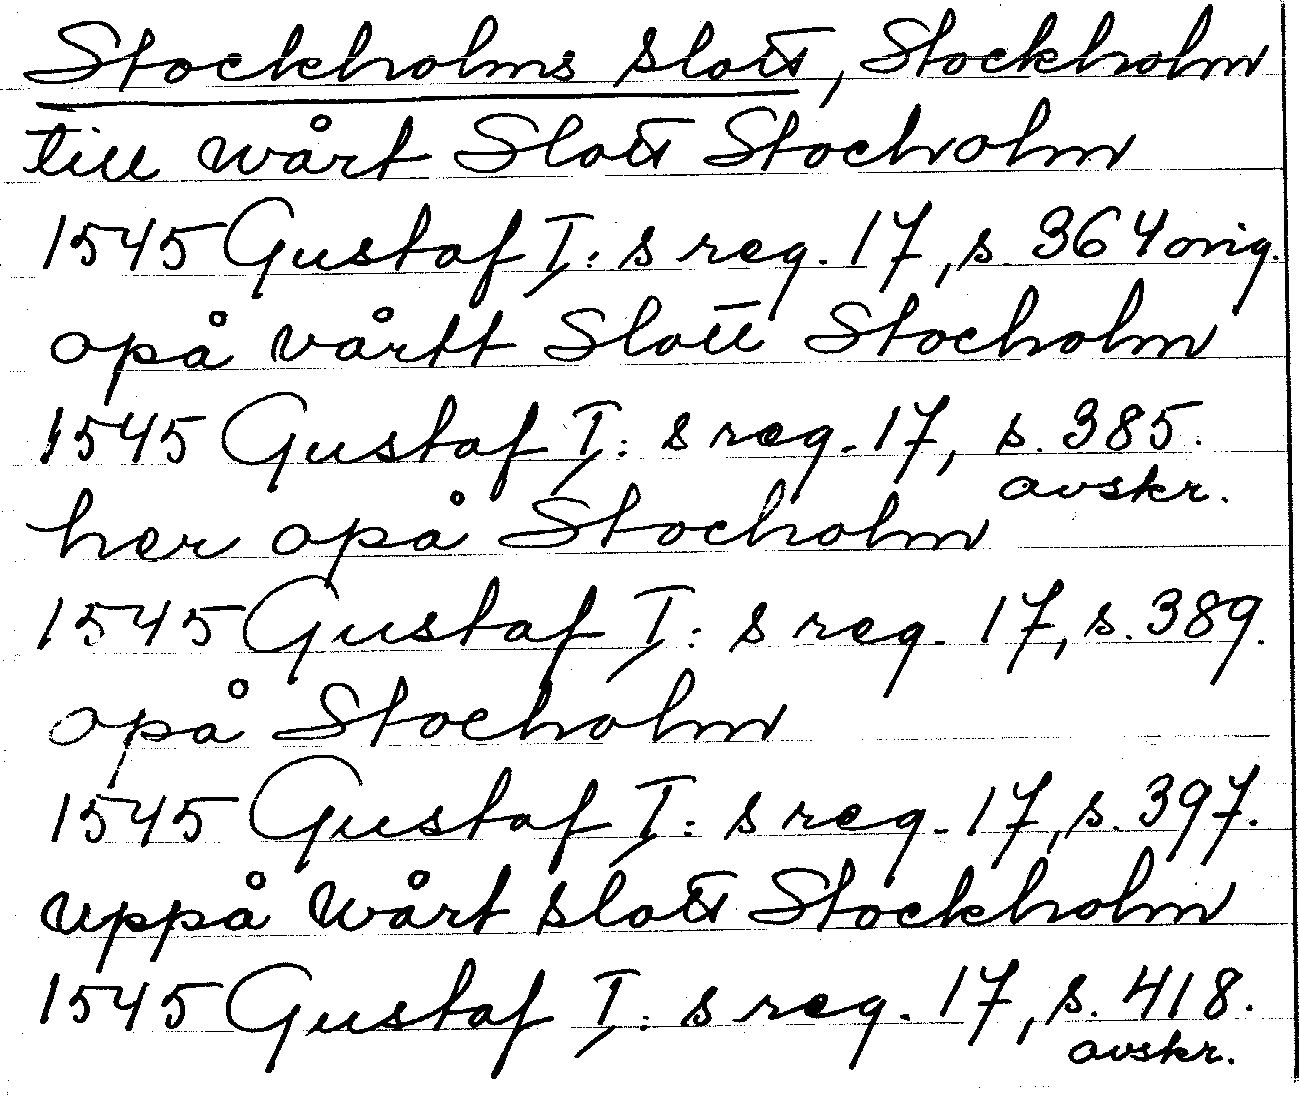 Stockholms slott, Stockholm
till wårt Slott Stocholm
1545 Gustaf I: s reg. 17, s. 364 orig.
opå vårtt Slott Stocholm
1545 Gustaf I: s reg. 17, s. 385.
avskr.
her opå Stocholm
1545 Gustaf I: s reg. 17, s. 389.
opå Stocholm
1545 Gustaf I: s reg. 17, s. 397.
uppå Wårt slott Stockholm
1545 Gustaf I: s reg. 17, s. 418.
avskr.